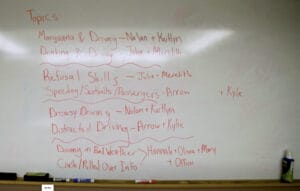 Topics
Marijuana & Driving - Nolan + Kaitlyn
Drinking & Driving - Julia + Meredith
Refusal Skills - Julia + Meredith
Speeding/Seatbelts/Passengers - Arrow + Kylie
Drowsy Driving - Nolan + Kaitlyn
Distracted Driving - Arrow + Kylie
Driving in Bad Weather > Hannah + Olivia + Mary
Crash/Rolled Over Info +